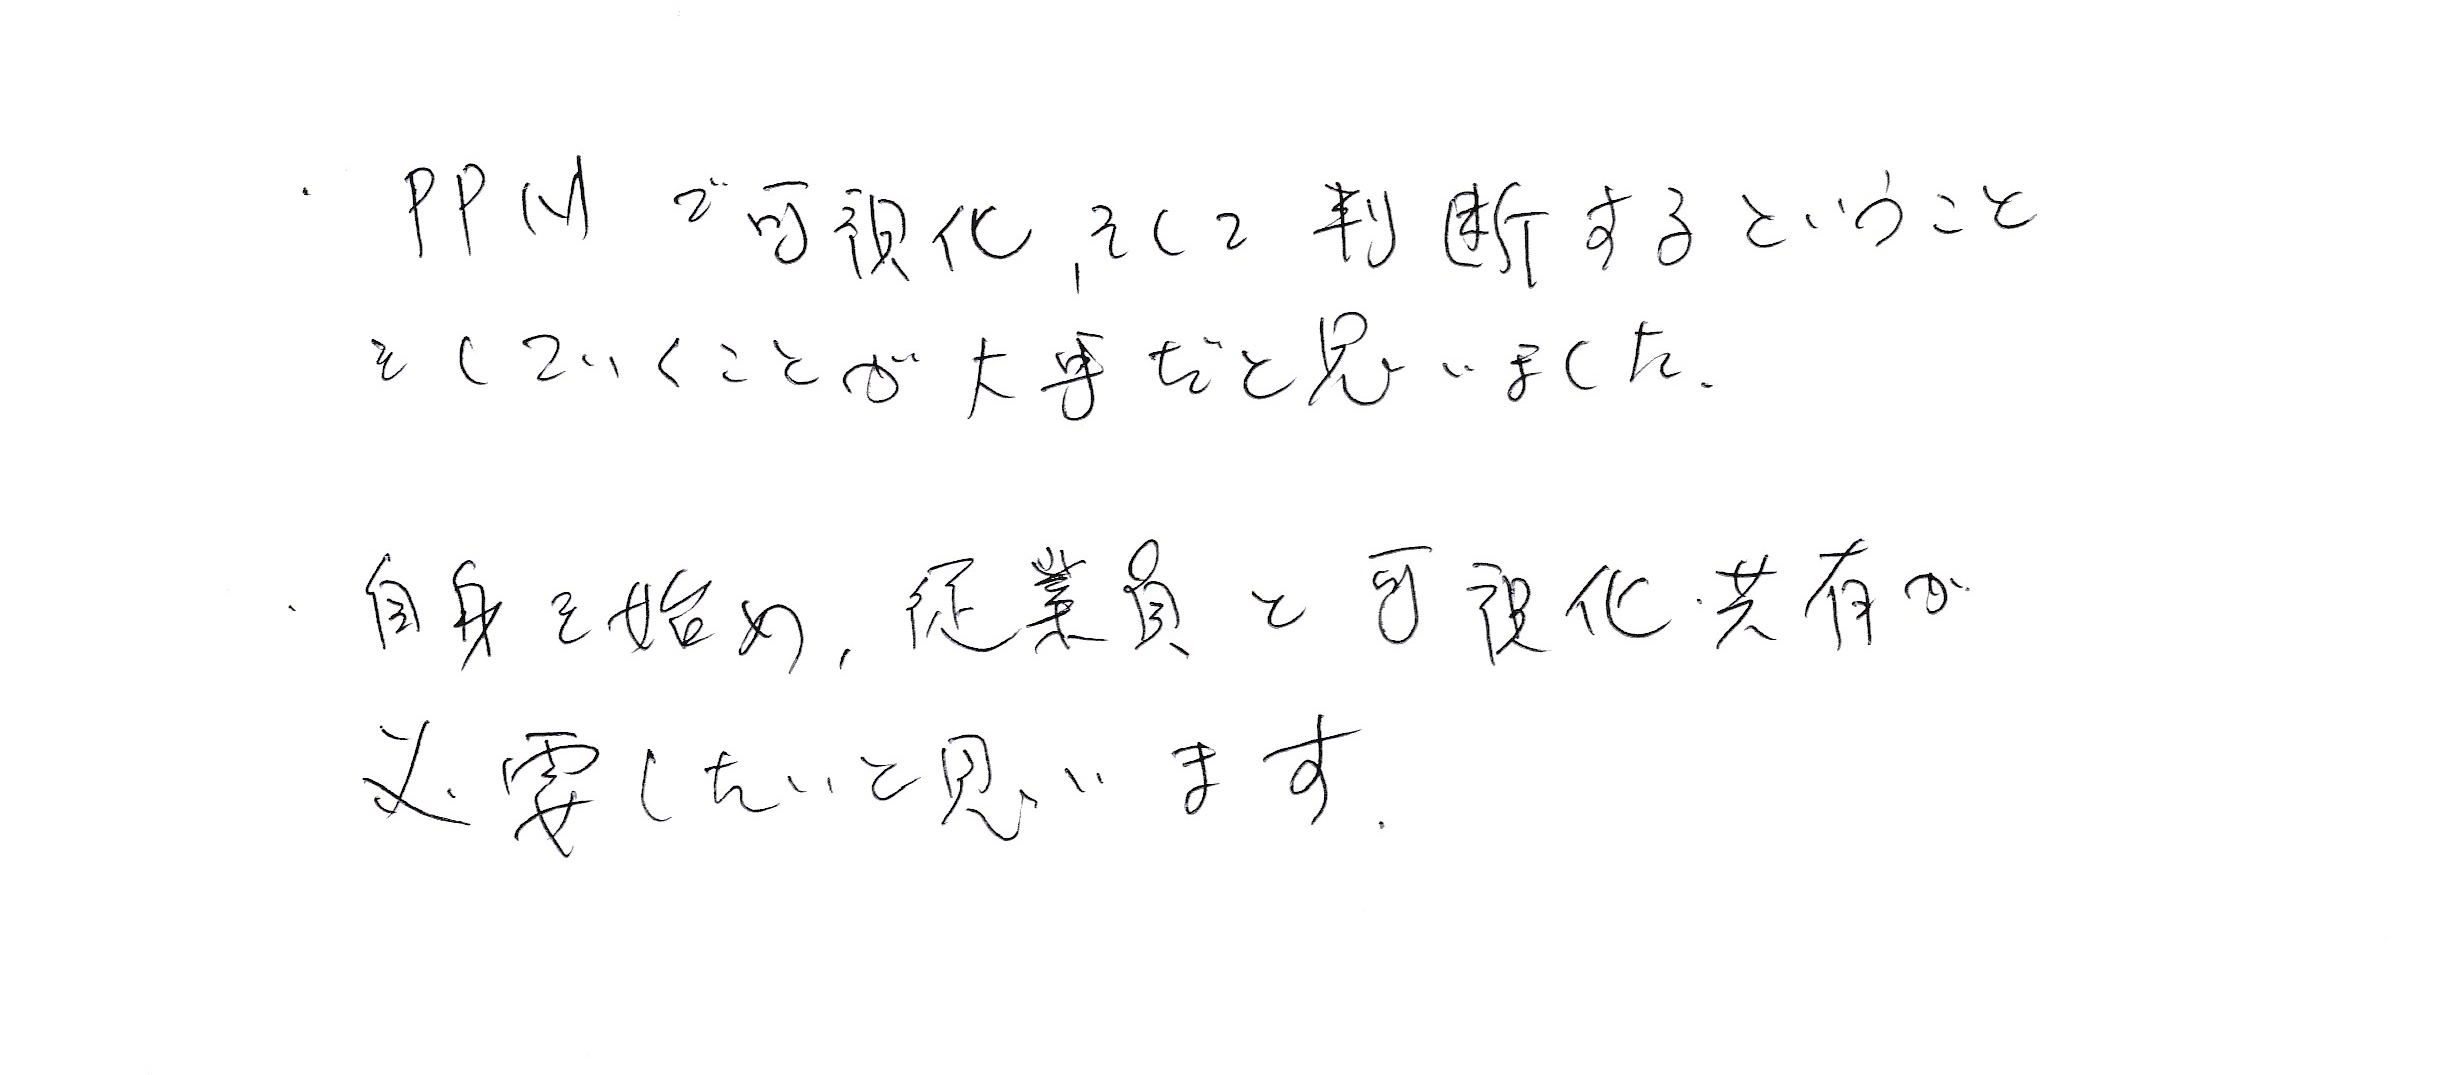 ・PPMで可視化,そして判断するということ
をしていくことが大事だと思いました.
・自身を始め,従業員と可視化・共有が
必要したいと思います.